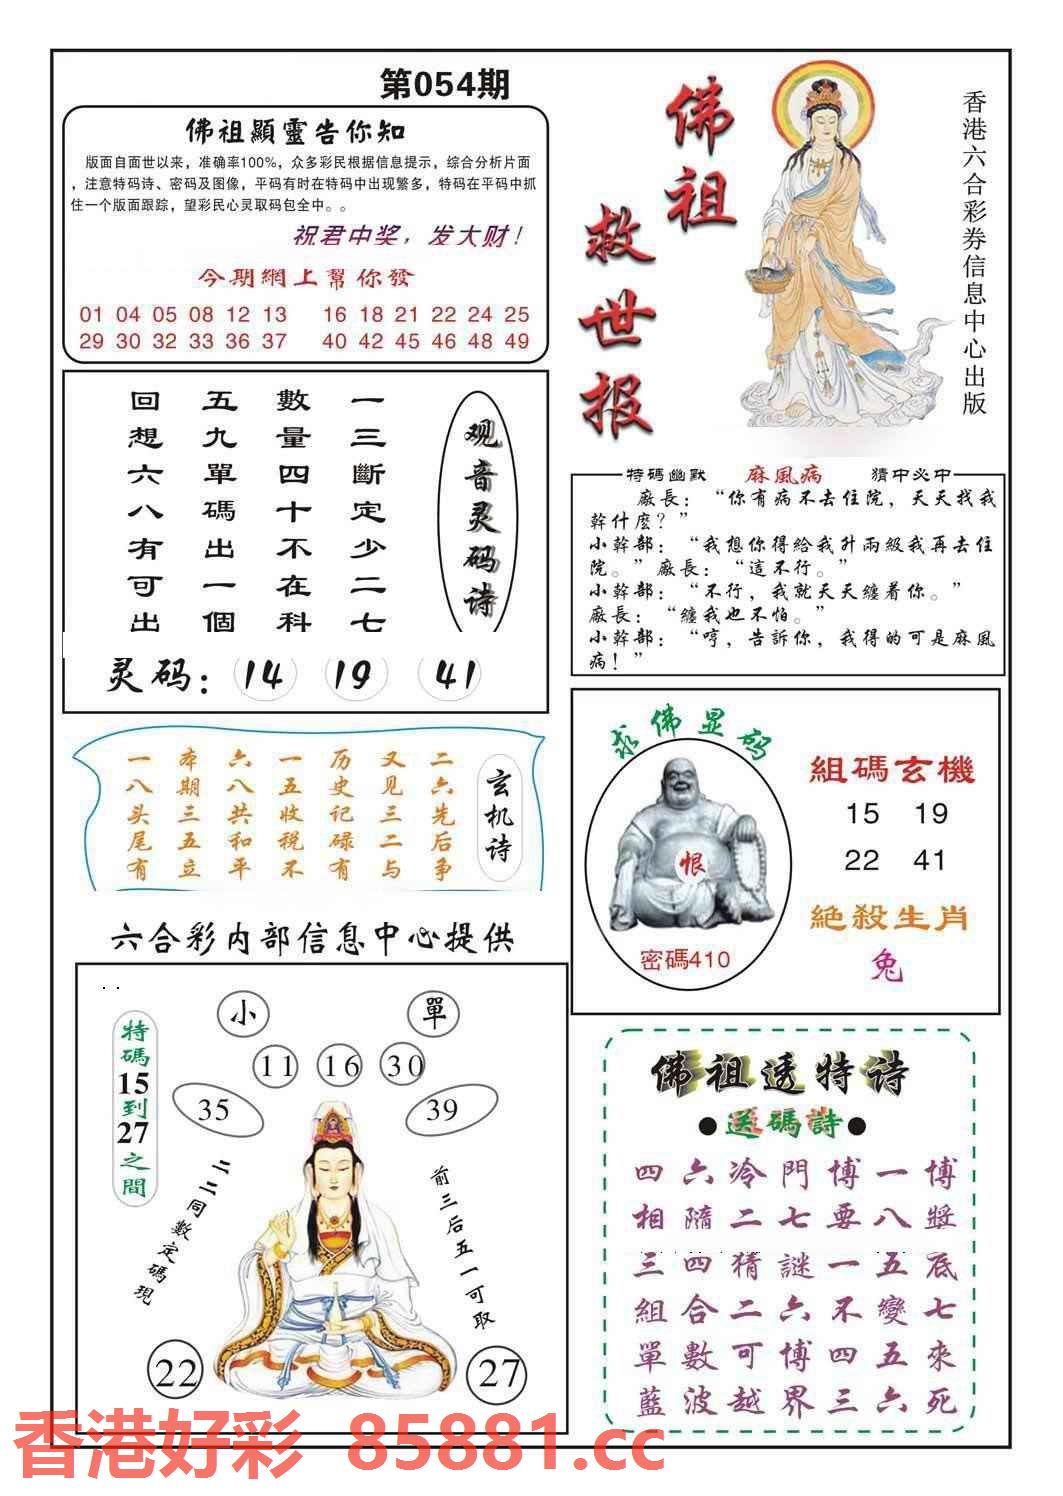 第054期
佛祖顯靈告你知
版面自面世以来，准确率100%，众多彩民根据信息提示，综合分析片面
，注意特码诗、密码及图像，平码有时在特码中出现繁多，特码在平码中抓
住一个版面跟踪，望彩民心灵取码包全中。。
祝君中奖，发大财！
今期網上幫你發
01 04 05 08 12 13 16 18 21 22 24 25
29 30 32 33 36 37 40 42 45 46 48 49
佛祖
救世报
香港六合彩券信息中心出版
观音灵码诗
一三斷定少二七
數量四十不在科
五九單碼出一個
回想六八有可出
灵码： 14 19 41
特碼幽默 麻風病 猜中必中
廠長：“你有病不去住院，天天找我
幹什麽？”
小幹部：“我想你得給我升兩級我再去住
院。”廠長：“這不行。”
小幹部：“不行，我就天天纏着你。”
廠長：“纏我也不怕。”
小幹部：“哼，告訴你，我得的可是麻風
病！”
玄机诗
二六先后争
又见三二与
历史记碌有
一五收税不
六八共和平
本期三五立
一八头尾有
求佛显码
恨
密碼410
組碼玄機
15 19
22 41
絶殺生肖
兔
六合彩内部信息中心提供
特碼15到27之間
小 單
11 16 30
35 39
二二同數定碼現
前三后五一可取
22 27
佛祖透特诗
●送碼詩●
四六冷門博一博
相隨二七要八獎
三四猜謎一五底
組合二六不變七
單數可博四五來
藍波越界三六死
香港好彩 85881.cc